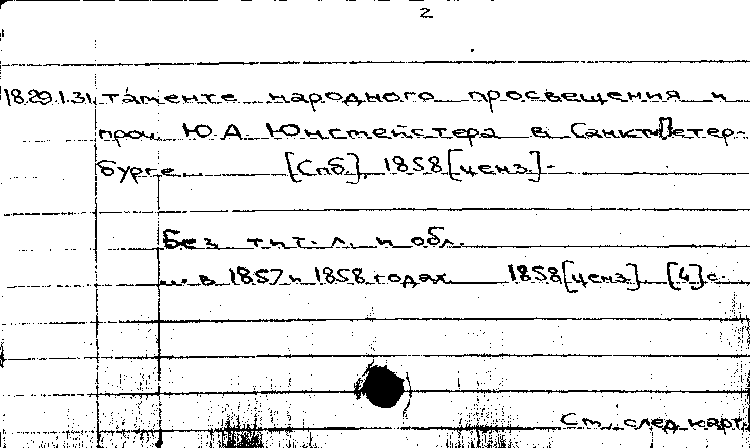 2
18.29.1.31. таменте народного просвещения и
проч. Ю.А. Юнгмейстера в Санктпетер-
бурге... [Спб.], 1858 [ценз.].-
Без тит. л. и обл.
... в 1857 и 1858 годах 1858 [ценз.] [4] с.
См. след. карт.